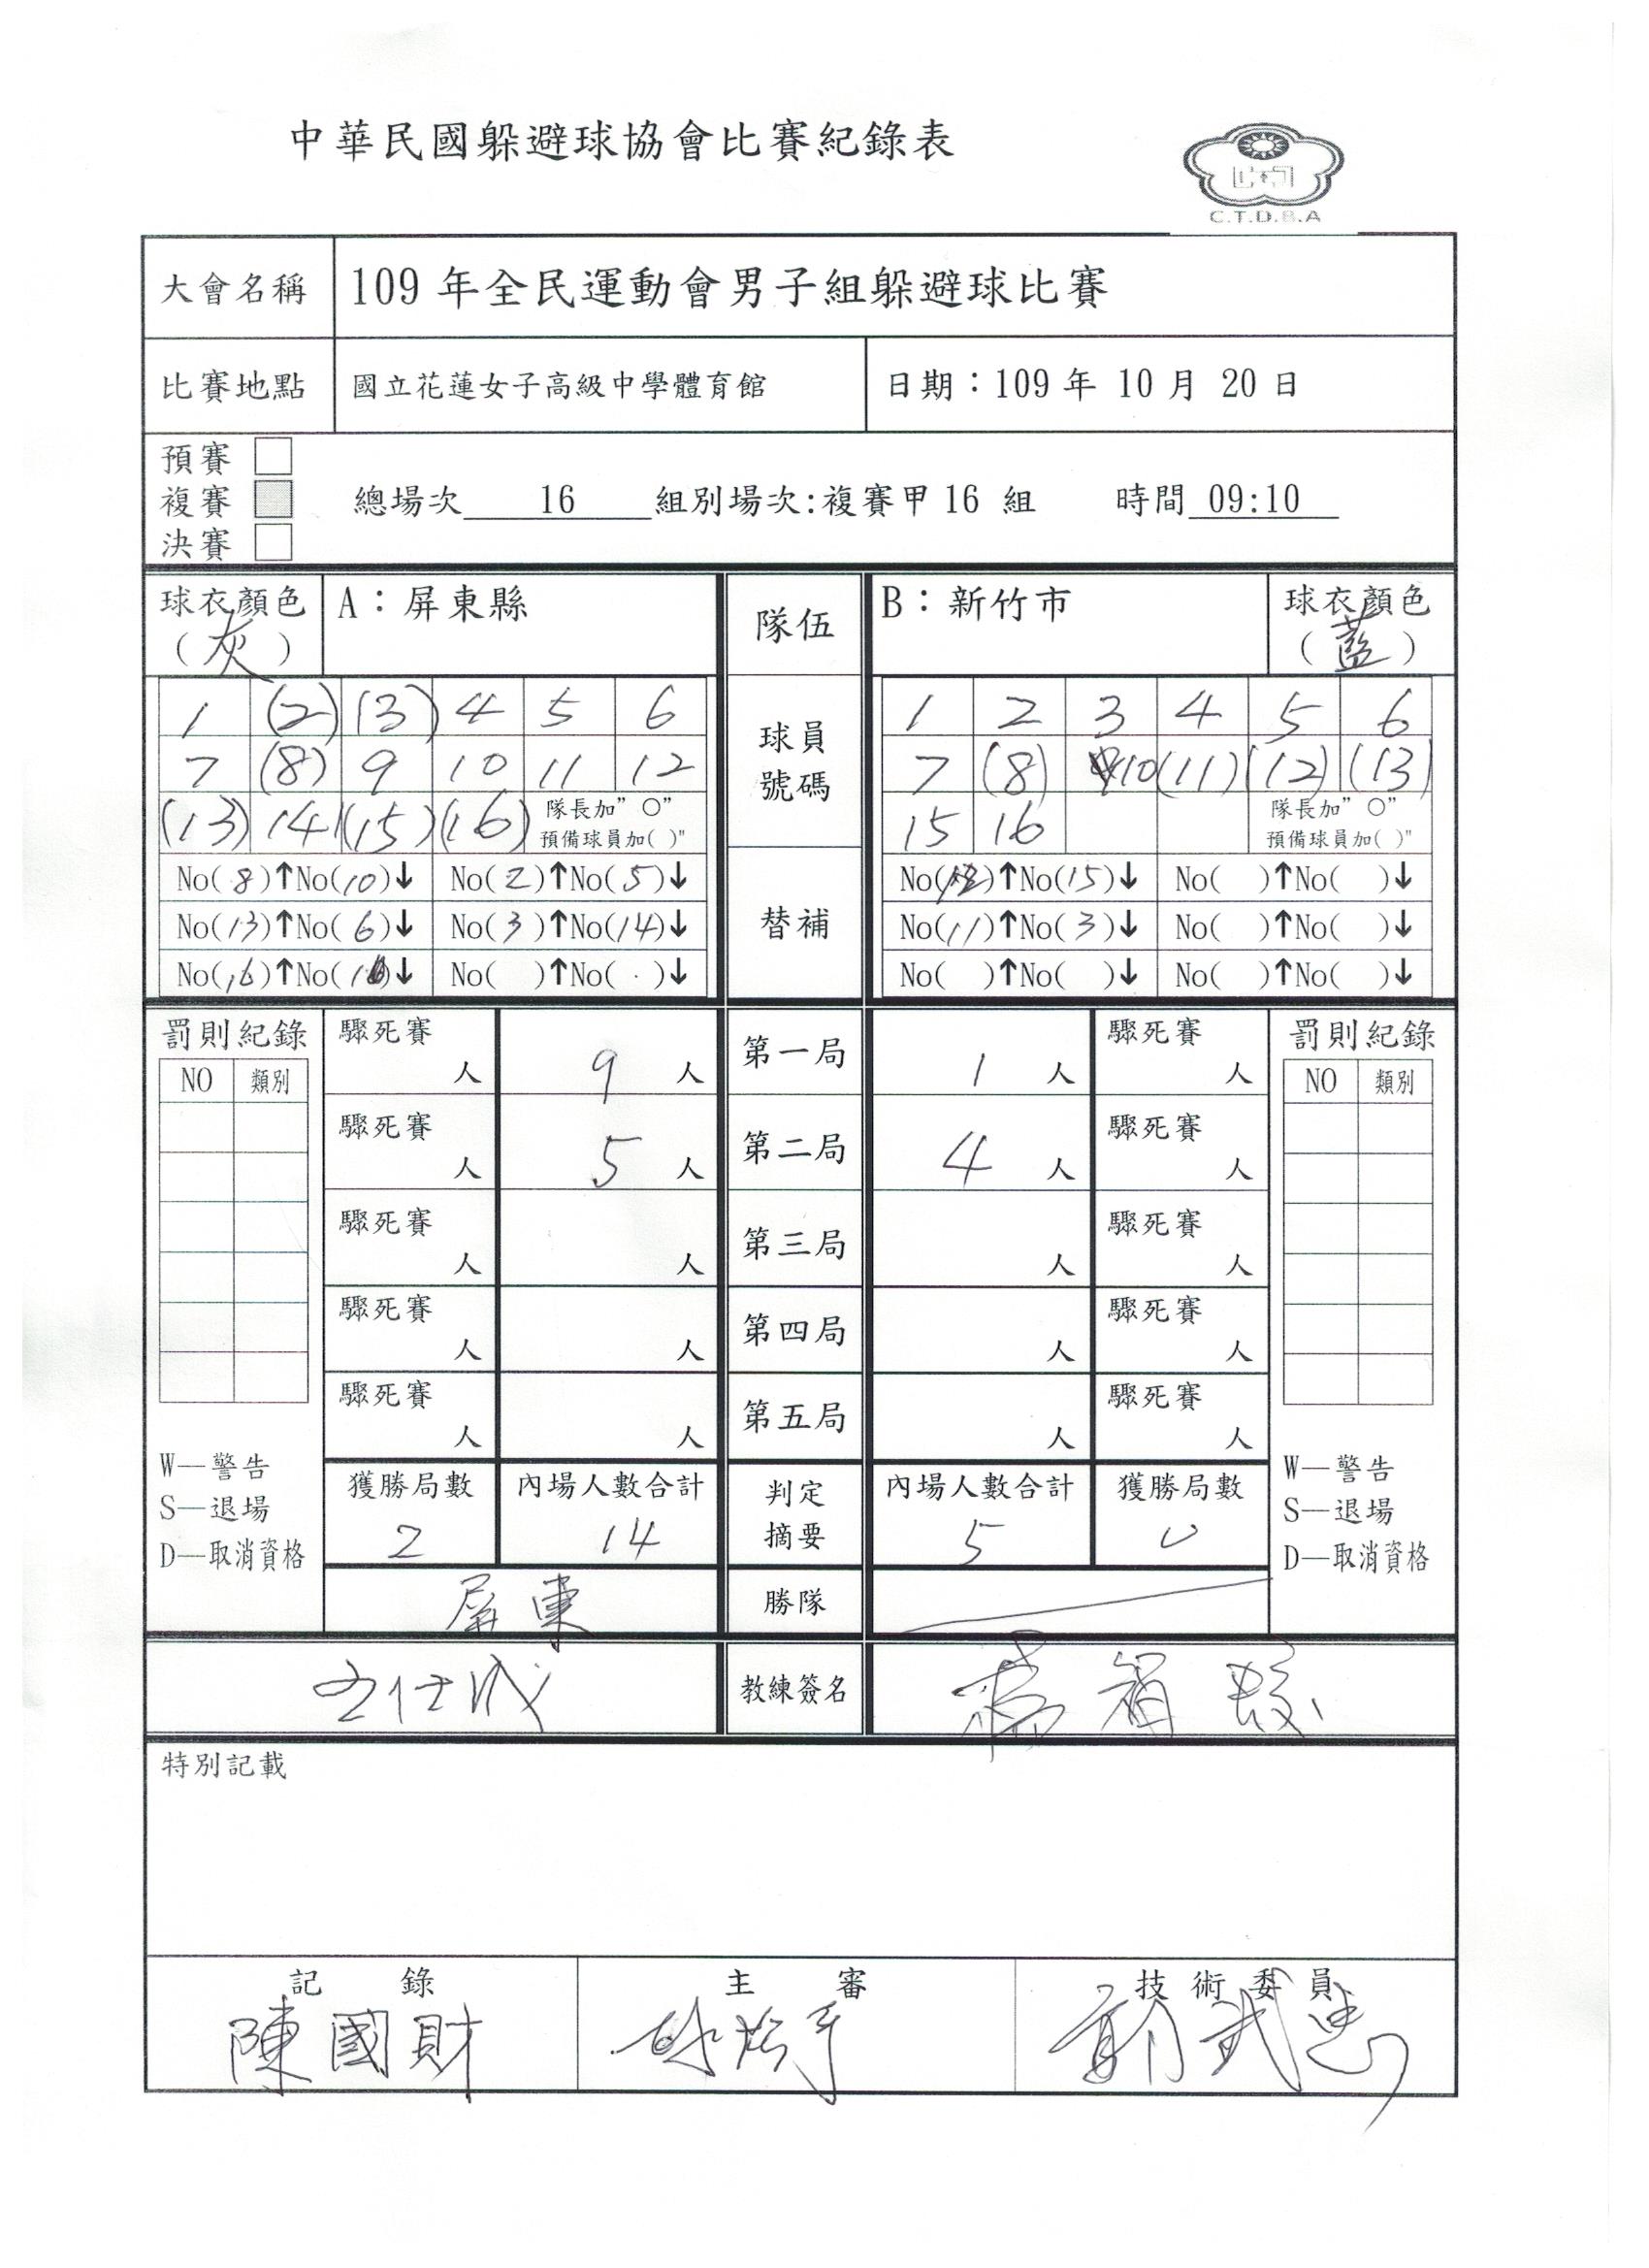 中華民國躲避球協會比賽紀錄表
C.T.D.B.A
大會名稱 109 年全民運動會男子組躲避球比賽
比賽地點 國立花蓮女子高級中學體育館 日期：109 年 10 月 20 日
預賽
複賽 總場次 16 組別場次:複賽甲 16 組 時間 09:10
決賽
球衣顏色 A：屏東縣 隊伍 B：新竹市 球衣顏色
(灰) (藍)
1 (2) (3) 4 5 6 球員 1 2 3 4 5 6
7 (8) 9 10 11 12 號碼 7 (8) 10 (11) (12) (13)
(13) 14 (15) (16) 隊長加"○" 15 16 隊長加"○"
預備球員加( )" 預備球員加( )"
No(8)↑No(10)↓ No(2)↑No(5)↓ 替補 No( )↑No(15)↓ No( )↑No( )↓
No(13)↑No(6)↓ No(3)↑No(14)↓ No(11)↑No(3)↓ No( )↑No( )↓
No(16)↑No( )↓ No( )↑No( )↓ No( )↑No( )↓ No( )↑No( )↓
罰則紀錄 驟死賽 人 9 人 第一局 1 人 驟死賽 人 罰則紀錄
NO 類別 NO 類別
驟死賽 人 5 人 第二局 4 人 驟死賽 人
驟死賽 人 人 第三局 人 驟死賽 人
驟死賽 人 人 第四局 人 驟死賽 人
驟死賽 人 人 第五局 人 驟死賽 人
W—警告 獲勝局數 內場人數合計 判定 內場人數合計 獲勝局數 W—警告
S—退場 2 14 摘要 5 0 S—退場
D—取消資格 D—取消資格
屏東 勝隊
教練簽名
特別記載
記錄 主審 技術委員
陳國財